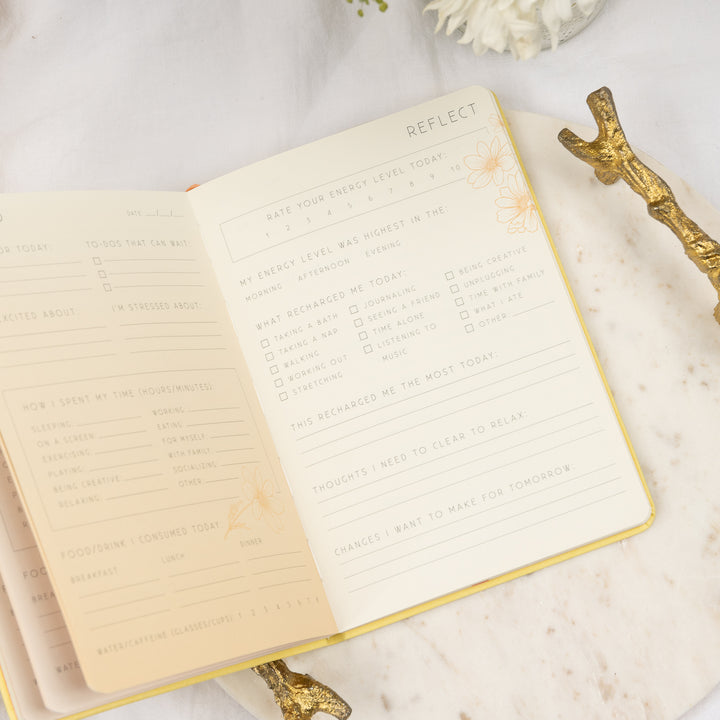 DATE: __/__/__
OR TODAY:
TO-DOS THAT CAN WAIT:
XCITED ABOUT:
I'M STRESSED ABOUT:
HOW I SPENT MY TIME (HOURS/MINUTES)
SLEEPING:
WORKING:
ON A SCREEN:
EATING:
EXERCISING:
FOR MYSELF:
PLAYING:
WITH FAMILY:
BEING CREATIVE:
SOCIALIZING:
RELAXING:
OTHER:
FOOD/DRINK I CONSUMED TODAY:
BREAKFAST
LUNCH
DINNER
WATER/CAFFEINE (GLASSES/CUPS) 1 2 3 4 5 6 7 8
FOO
BREA
WATE
REFLECT
RATE YOUR ENERGY LEVEL TODAY:
1 2 3 4 5 6 7 8 9 10
MY ENERGY LEVEL WAS HIGHEST IN THE:
MORNING AFTERNOON EVENING
WHAT RECHARGED ME TODAY:
TAKING A BATH
TAKING A NAP
WALKING
WORKING OUT
STRETCHING
JOURNALING
SEEING A FRIEND
TIME ALONE
LISTENING TO
MUSIC
BEING CREATIVE
UNPLUGGING
TIME WITH FAMILY
WHAT I ATE
OTHER:
THIS RECHARGED ME THE MOST TODAY:
THOUGHTS I NEED TO CLEAR TO RELAX:
CHANGES I WANT TO MAKE FOR TOMORROW: